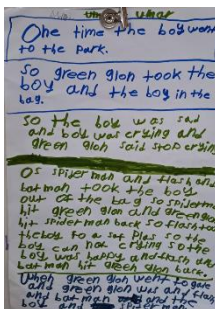 One time the boy went
to the Park.
So green glon took the
boy and the boy in the
bag.
So the boy was sad
and boy was crying and
green glon said stop crying
Os spider man and flash and
bat man took the boy
out of the bag so spiderman
hit green glon and green glon
hit spider man back so flash took
the boy to a saf plas so the
boy can not crying so the
boy was happy and flash and
bat man hit green glon back.
When green glon went to
and green glon was and flash
and bat man and the
boy